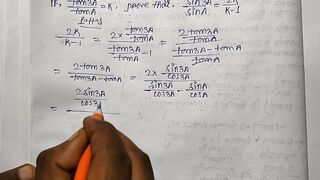 If, tan3A/tanA = K, prove that, sin3A/sinA = 2K/K-1
2K/K-1 = (2×tan3A/tanA)/(tan3A/tanA - 1) = (2tan3A/tanA)/((tan3A-tanA)/tanA)
= 2tan3A/(tan3A-tanA) = (2× sin3A/cos3A)/(sin3A/cos3A - sinA/cosA)
= 2sin3A/cos3A